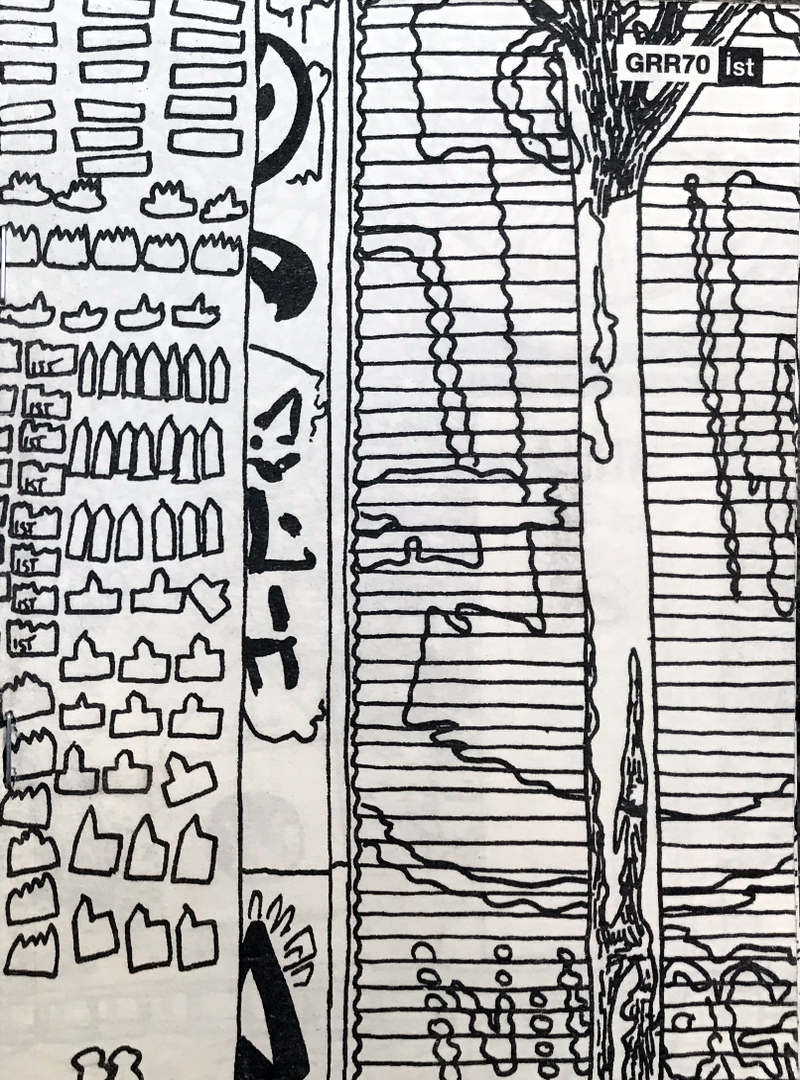 GRR70 İst
IST
IST
IST
IST
IST
IST
IST
IST